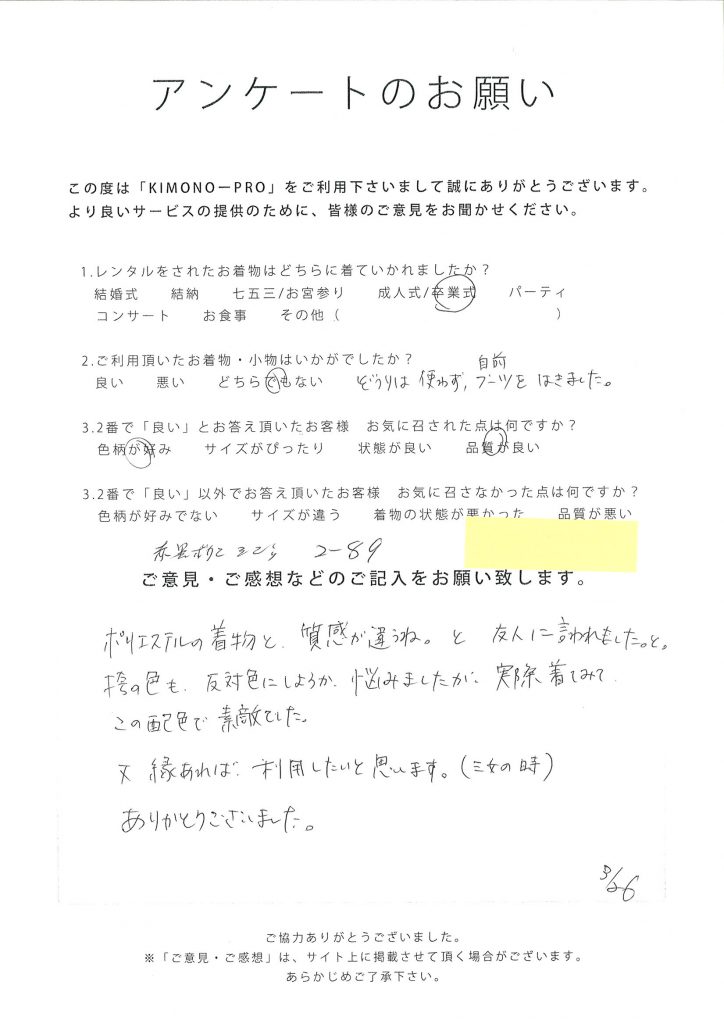 アンケートのお願い
この度は「KIMONO―PRO」をご利用下さいまして誠にありがとうございます。
より良いサービスの提供のために、皆様のご意見をお聞かせください。
1.レンタルをされたお着物はどちらに着ていかれましたか？
結婚式 結納 七五三/お宮参り 成人式/卒業式 パーティ
コンサート お食事 その他（ ）
2.ご利用頂いたお着物・小物はいかがでしたか？ 自前
良い 悪い どちらでもない ぞうりは使わず,ブーツをはきました。
3.2番で「良い」とお答え頂いたお客様 お気に召された点は何ですか？
色柄が好み サイズがぴったり 状態が良い 品質が良い
3.2番で「良い」以外でお答え頂いたお客様 お気に召さなかった点は何ですか？
色柄が好みでない サイズが違う 着物の状態が悪かった 品質が悪い
2-89
ご意見・ご感想などのご記入をお願い致します。
ポリエステルの着物と、質感が違うね。と 友人に言われました。と。
袴の色も、反対色にしようか、悩みましたが、実際着てみて、
この配色で素敵でした。
又 縁あれば、利用したいと思います。(三女の時)
ありがとうございました。
3/26
ご協力ありがとうございました。
※「ご意見・ご感想」は、サイト上に掲載させて頂く場合がございます。
あらかじめご了承下さい。